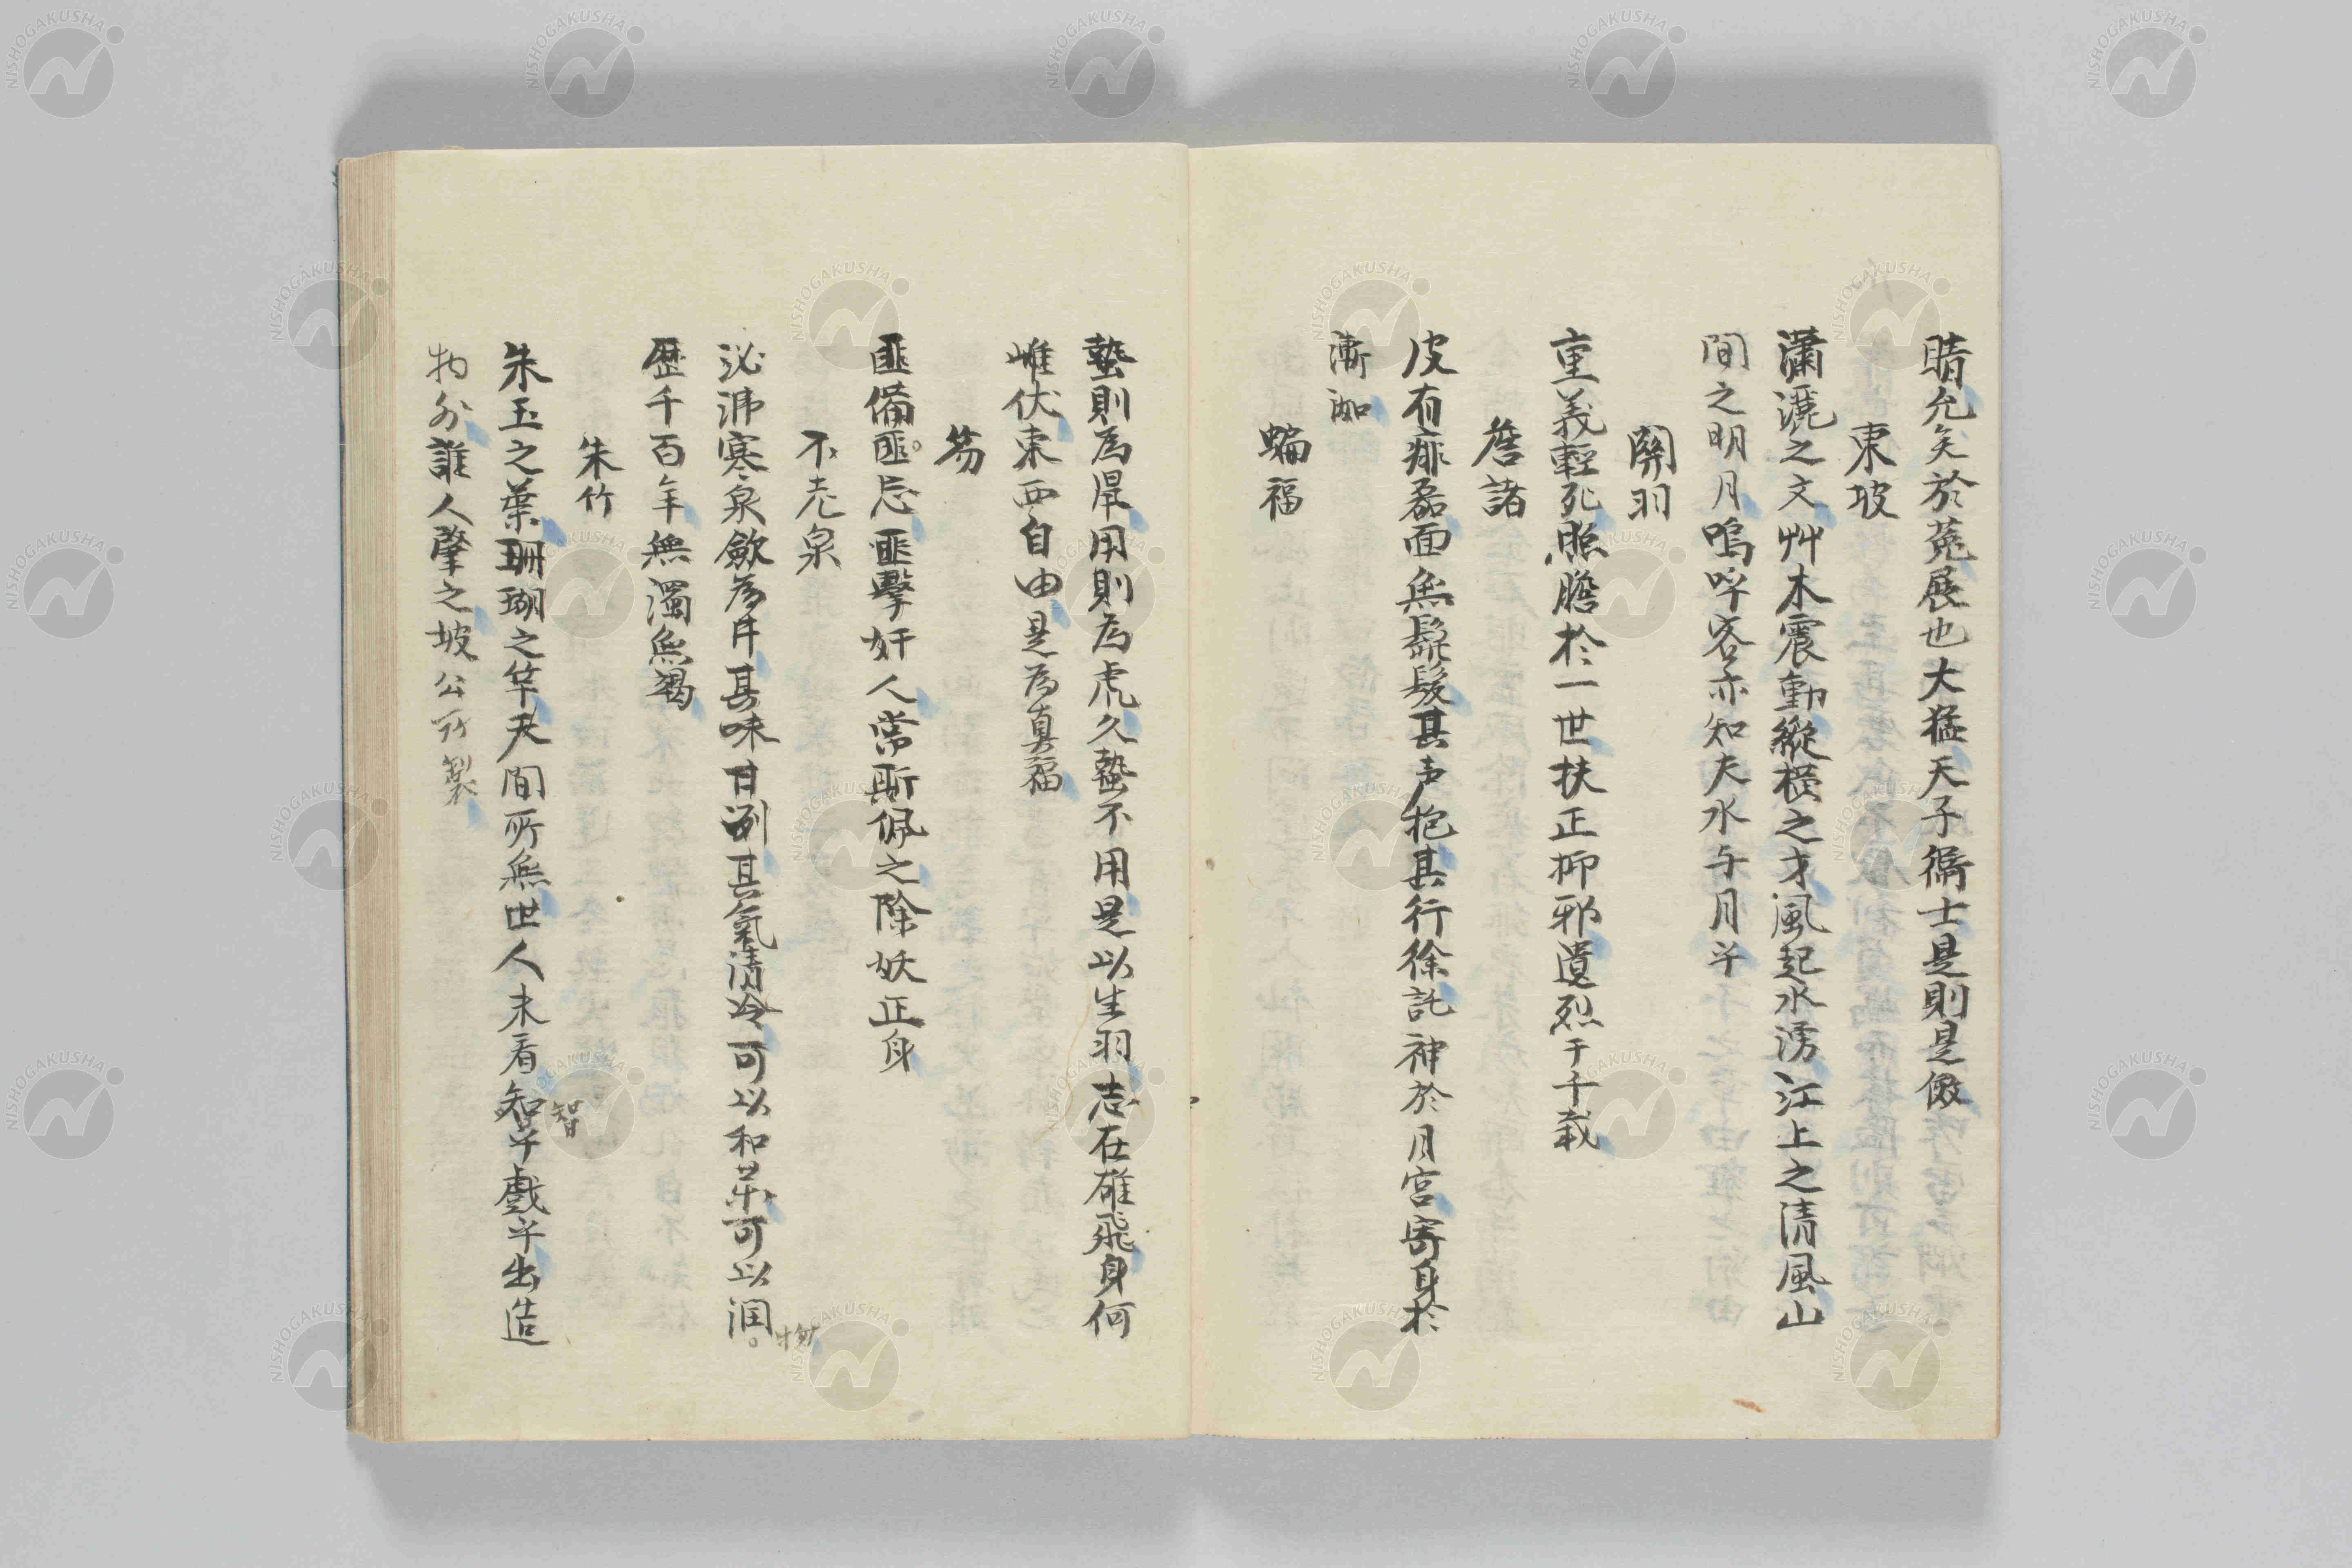 晴允矣於菟展也大猛天子衞士是則是傚
東坡
瀟灑之文艸木震動縱横之才風起水湧江上之清風山
間之明月嗚呼客亦知夫水与月乎
關羽
重義輕死照膽於一世扶正抑邪遺烈于千載
詹諸
皮有痱磊面無鬚髮其声抱其行徐託神於月宮寄身於
漸洳
蝙福
蟄則為用則為虎久蟄不用是以生羽志在雄飛身何
雌伏東西自由是為真福
笏
匪備匪忘匪擊奸人常斯佩之除妖正身
不老泉
泌沸寒泉歛為井其味甘冽其氣清冷可以和茶可以潤
物
歴千百年無濁無渇
朱竹
朱玉之葉珊瑚之竿天間所無世人未看智乎戲乎出造
智
物外誰人肇之坡公所製
NISHOGAKUSHA